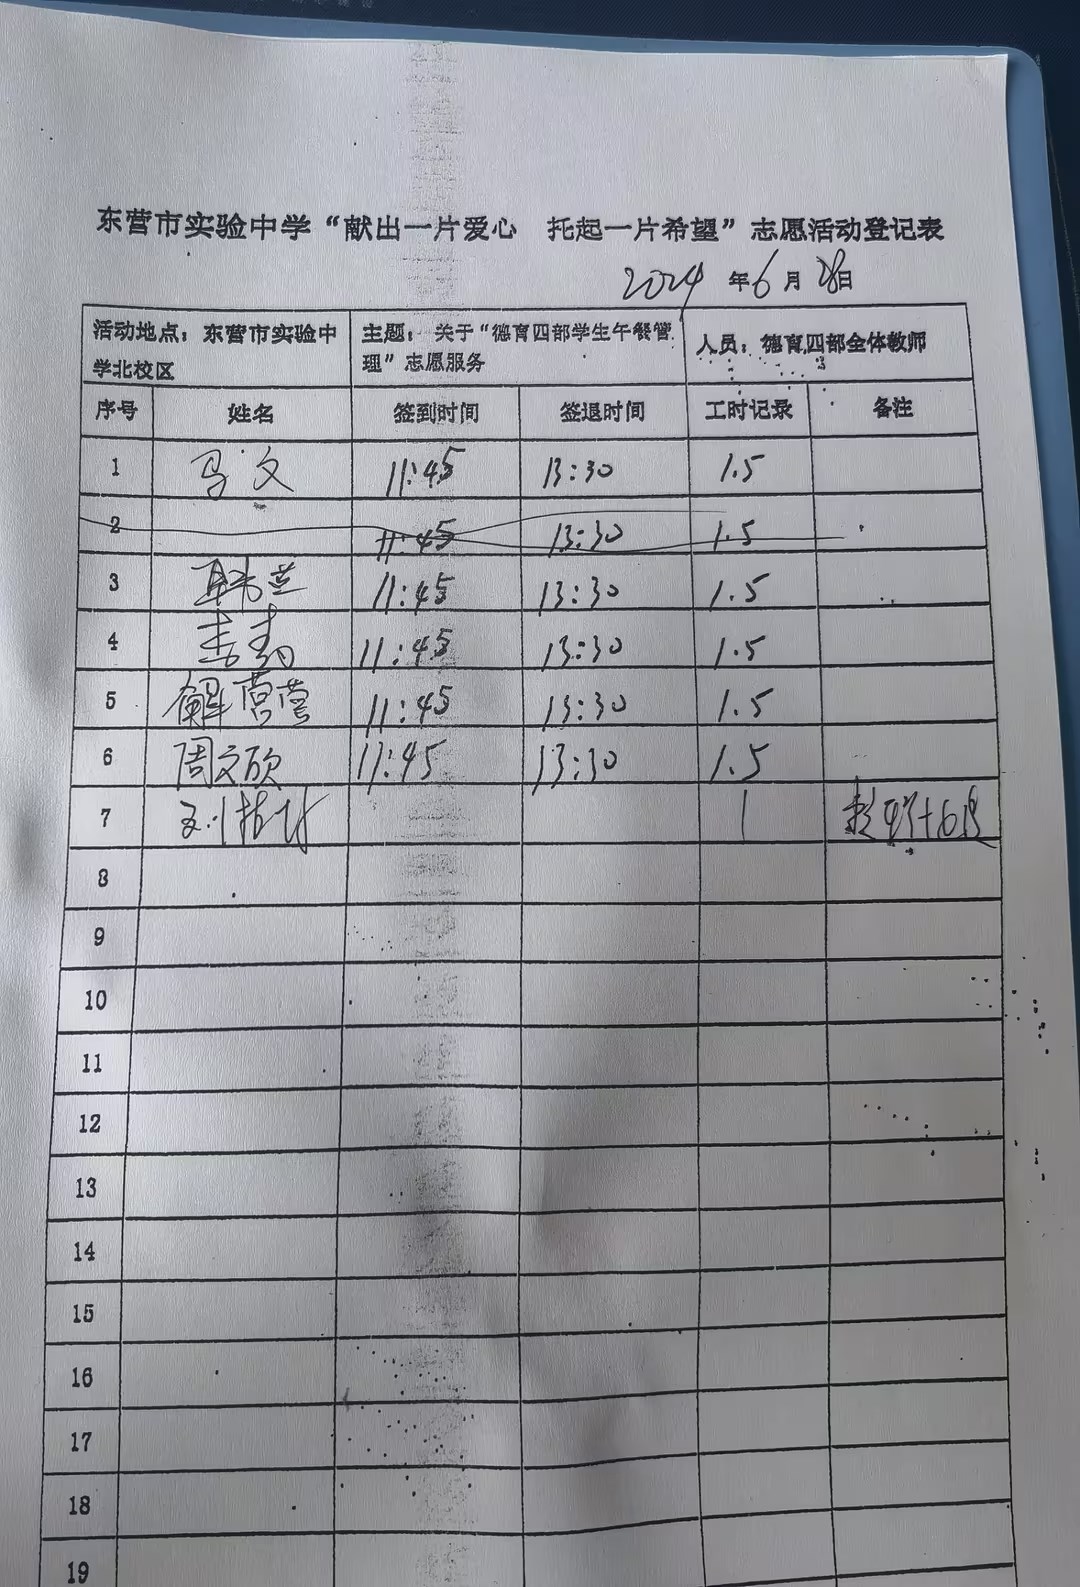 东营市实验中学“献出一片爱心 托起一片希望”志愿活动登记表
2024 年 6 月 28 日
活动地点：东营市实验中学北校区 主题：关于“德育四部学生午餐管理”志愿服务 人员：德育四部全体教师
序号 姓名 签到时间 签退时间 工时记录 备注
1 马文 11:45 13:30 1.5
2 11:45 13:30 1.5
3 11:45 13:30 1.5
4 11:45 13:30 1.5
5 解营营 11:45 13:30 1.5
6 周文欣 11:45 13:30 1.5
7 1
8
9
10
11
12
13
14
15
16
17
18
19